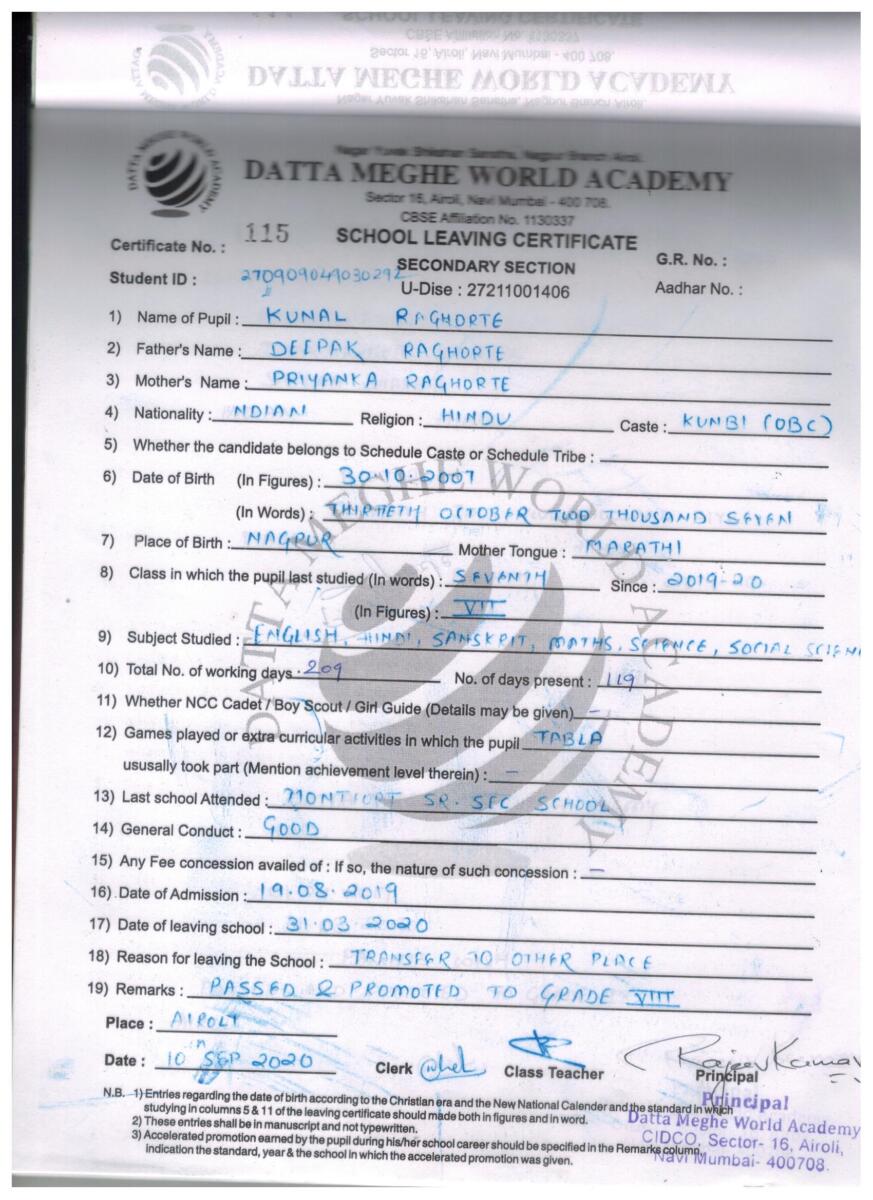 DATTA MEGHE WORLD ACADEMY
Nagar Yuvak Shikshan Sanstha, Nagpur Branch Airoli.
DATTA MEGHE WORLD ACADEMY
Sector 16, Airoli, Navi Mumbai - 400 708.
CBSE Affiliation No. 1130337
Certificate No. : 115 SCHOOL LEAVING CERTIFICATE
SECONDARY SECTION G.R. No. :
Student ID : 270909049030292 U-Dise : 27211001406 Aadhar No. :
1) Name of Pupil : KUNAL RAGHORTE
2) Father's Name : DEEPAK RAGHORTE
3) Mother's Name : PRIYANKA RAGHORTE
4) Nationality : NDIAN Religion : HINDU Caste : KUNBI (OBC)
5) Whether the candidate belongs to Schedule Caste or Schedule Tribe :
6) Date of Birth (In Figures) : 30.10.2007
(In Words) : THIRTIETH OCTOBER TWO THOUSAND SEVEN
7) Place of Birth : NAGPUR Mother Tongue : MARATHI
8) Class in which the pupil last studied (In words) : SEVANTH Since : 2019-20
(In Figures) : VII
9) Subject Studied : ENGLISH, HINDI, SANSKRIT, MATHS, SCIENCE, SOCIAL SCIEN
10) Total No. of working days . 209 No. of days present : 119
11) Whether NCC Cadet / Boy Scout / Girl Guide (Details may be given) –
12) Games played or extra curricular activities in which the pupil TABLA
ususally took part (Mention achievement level therein) : –
13) Last school Attended : MONTFORT SR. SEC SCHOOL
14) General Conduct : GOOD
15) Any Fee concession availed of : If so, the nature of such concession : –
16) Date of Admission : 19.08.2019
17) Date of leaving school : 31.03.2020
18) Reason for leaving the School : TRANSFER TO OTHER PLACE
19) Remarks : PASSED & PROMOTED TO GRADE VIII
Place : AIROLI
Date : 10th SEP 2020 Clerk Class Teacher Rajeev Kumar Principal
N.B. - 1) Entries regarding the date of birth according to the Christian era and the New National Calender and the standard in which
studying in columns 5 & 11 of the leaving certificate should made both in figures and in word.
2) These entries shall be in manuscript and not typewritten.
3) Accelerated promotion earned by the pupil during his/her school career should be specified in the Remarks column,
indication the standard, year & the school in which the accelerated promotion was given.
Principal
Datta Meghe World Academy
CIDCO, Sector- 16, Airoli,
Navi Mumbai- 400708.